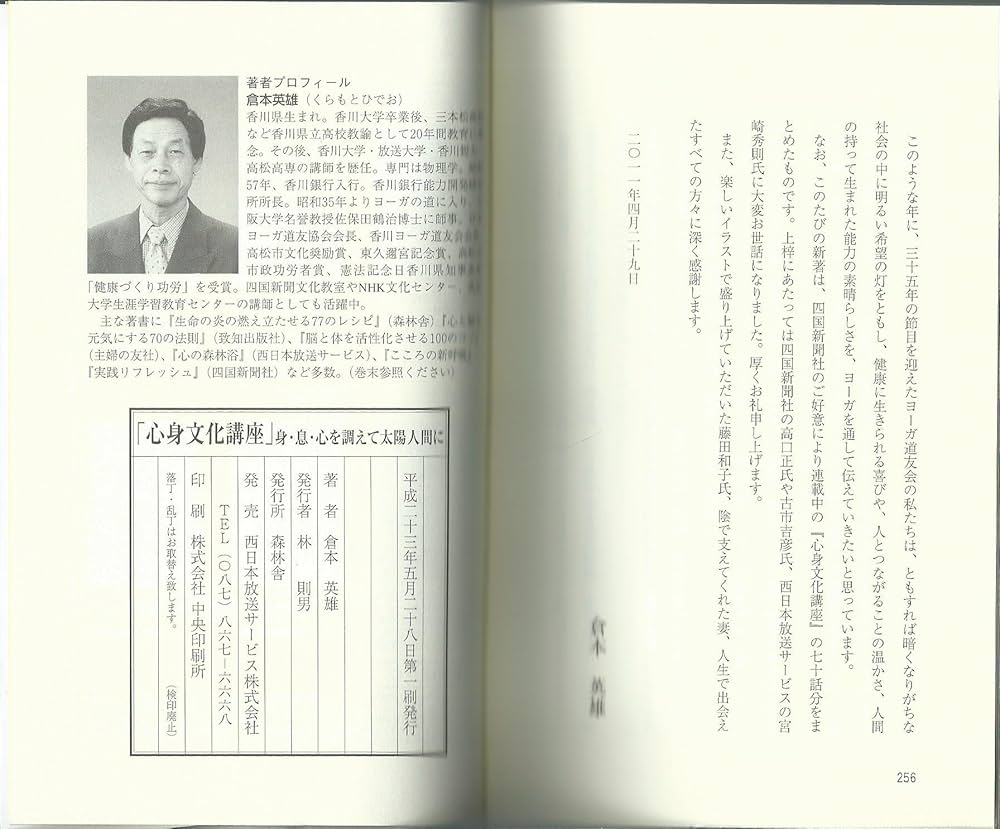 このような年に、三十五年の節目を迎えたヨーガ道友会の私たちは、ともすれば暗くなりがちな
社会の中に明るい希望の灯をともし、健康に生きられる喜びや、人とつながることの温かさ、人間
の持って生まれた能力の素晴らしさを、ヨーガを通して伝えていきたいと思っています。
なお、このたびの新著は、四国新聞社のご好意により連載中の『心身文化講座』の七十話分をま
とめたものです。上梓にあたっては四国新聞社の高口正氏や古市吉彦氏、西日本放送サービスの宮
崎秀則氏に大変お世話になりました。厚くお礼申し上げます。
また、楽しいイラストで盛り上げていただいた藤田和子氏、陰で支えてくれた妻、人生で出会え
たすべての方々に深く感謝します。
二〇一一年四月二十九日
倉本 英雄
256
著者プロフィール
倉本英雄（くらもとひでお）
香川県生まれ。香川大学卒業後、三本松
など香川県立高校教諭として20年間教育
念。その後、香川大学・放送大学・香川
高松高専の講師を歴任。専門は物理学。
57年、香川銀行入行。香川銀行能力開発
所所長。昭和35年よりヨーガの道に入り、
阪大学名誉教授佐保田鶴治博士に師事。
ヨーガ道友協会会長、香川ヨーガ道友会
高松市文化奨励賞、東久邇宮記念賞、
市政功労者賞、憲法記念日香川県知事
「健康づくり功労」を受賞。四国新聞文化教室やNHK文化センター、
大学生涯学習教育センターの講師としても活躍中。
主な著書に『生命の炎の燃え立たせる77のレシピ』（森林舎）『心
元気にする70の法則』（致知出版社）、『脳と体を活性化させる100の
（主婦の友社）、『心の森林浴』（西日本放送サービス）、『こころの新
『実践リフレッシュ』（四国新聞社）など多数。（巻末参照ください）
「心身文化講座」身・息・心を調えて太陽人間に
平成二十三年五月二十八日第一刷発行
著 者 倉本 英雄
発行者 林 則男
発行所 森林舎
発 売 西日本放送サービス株式会社
TEL（〇八七）八六七－六六六八
印 刷 株式会社 中央印刷所
落丁・乱丁はお取替え致します。（検印廃止）